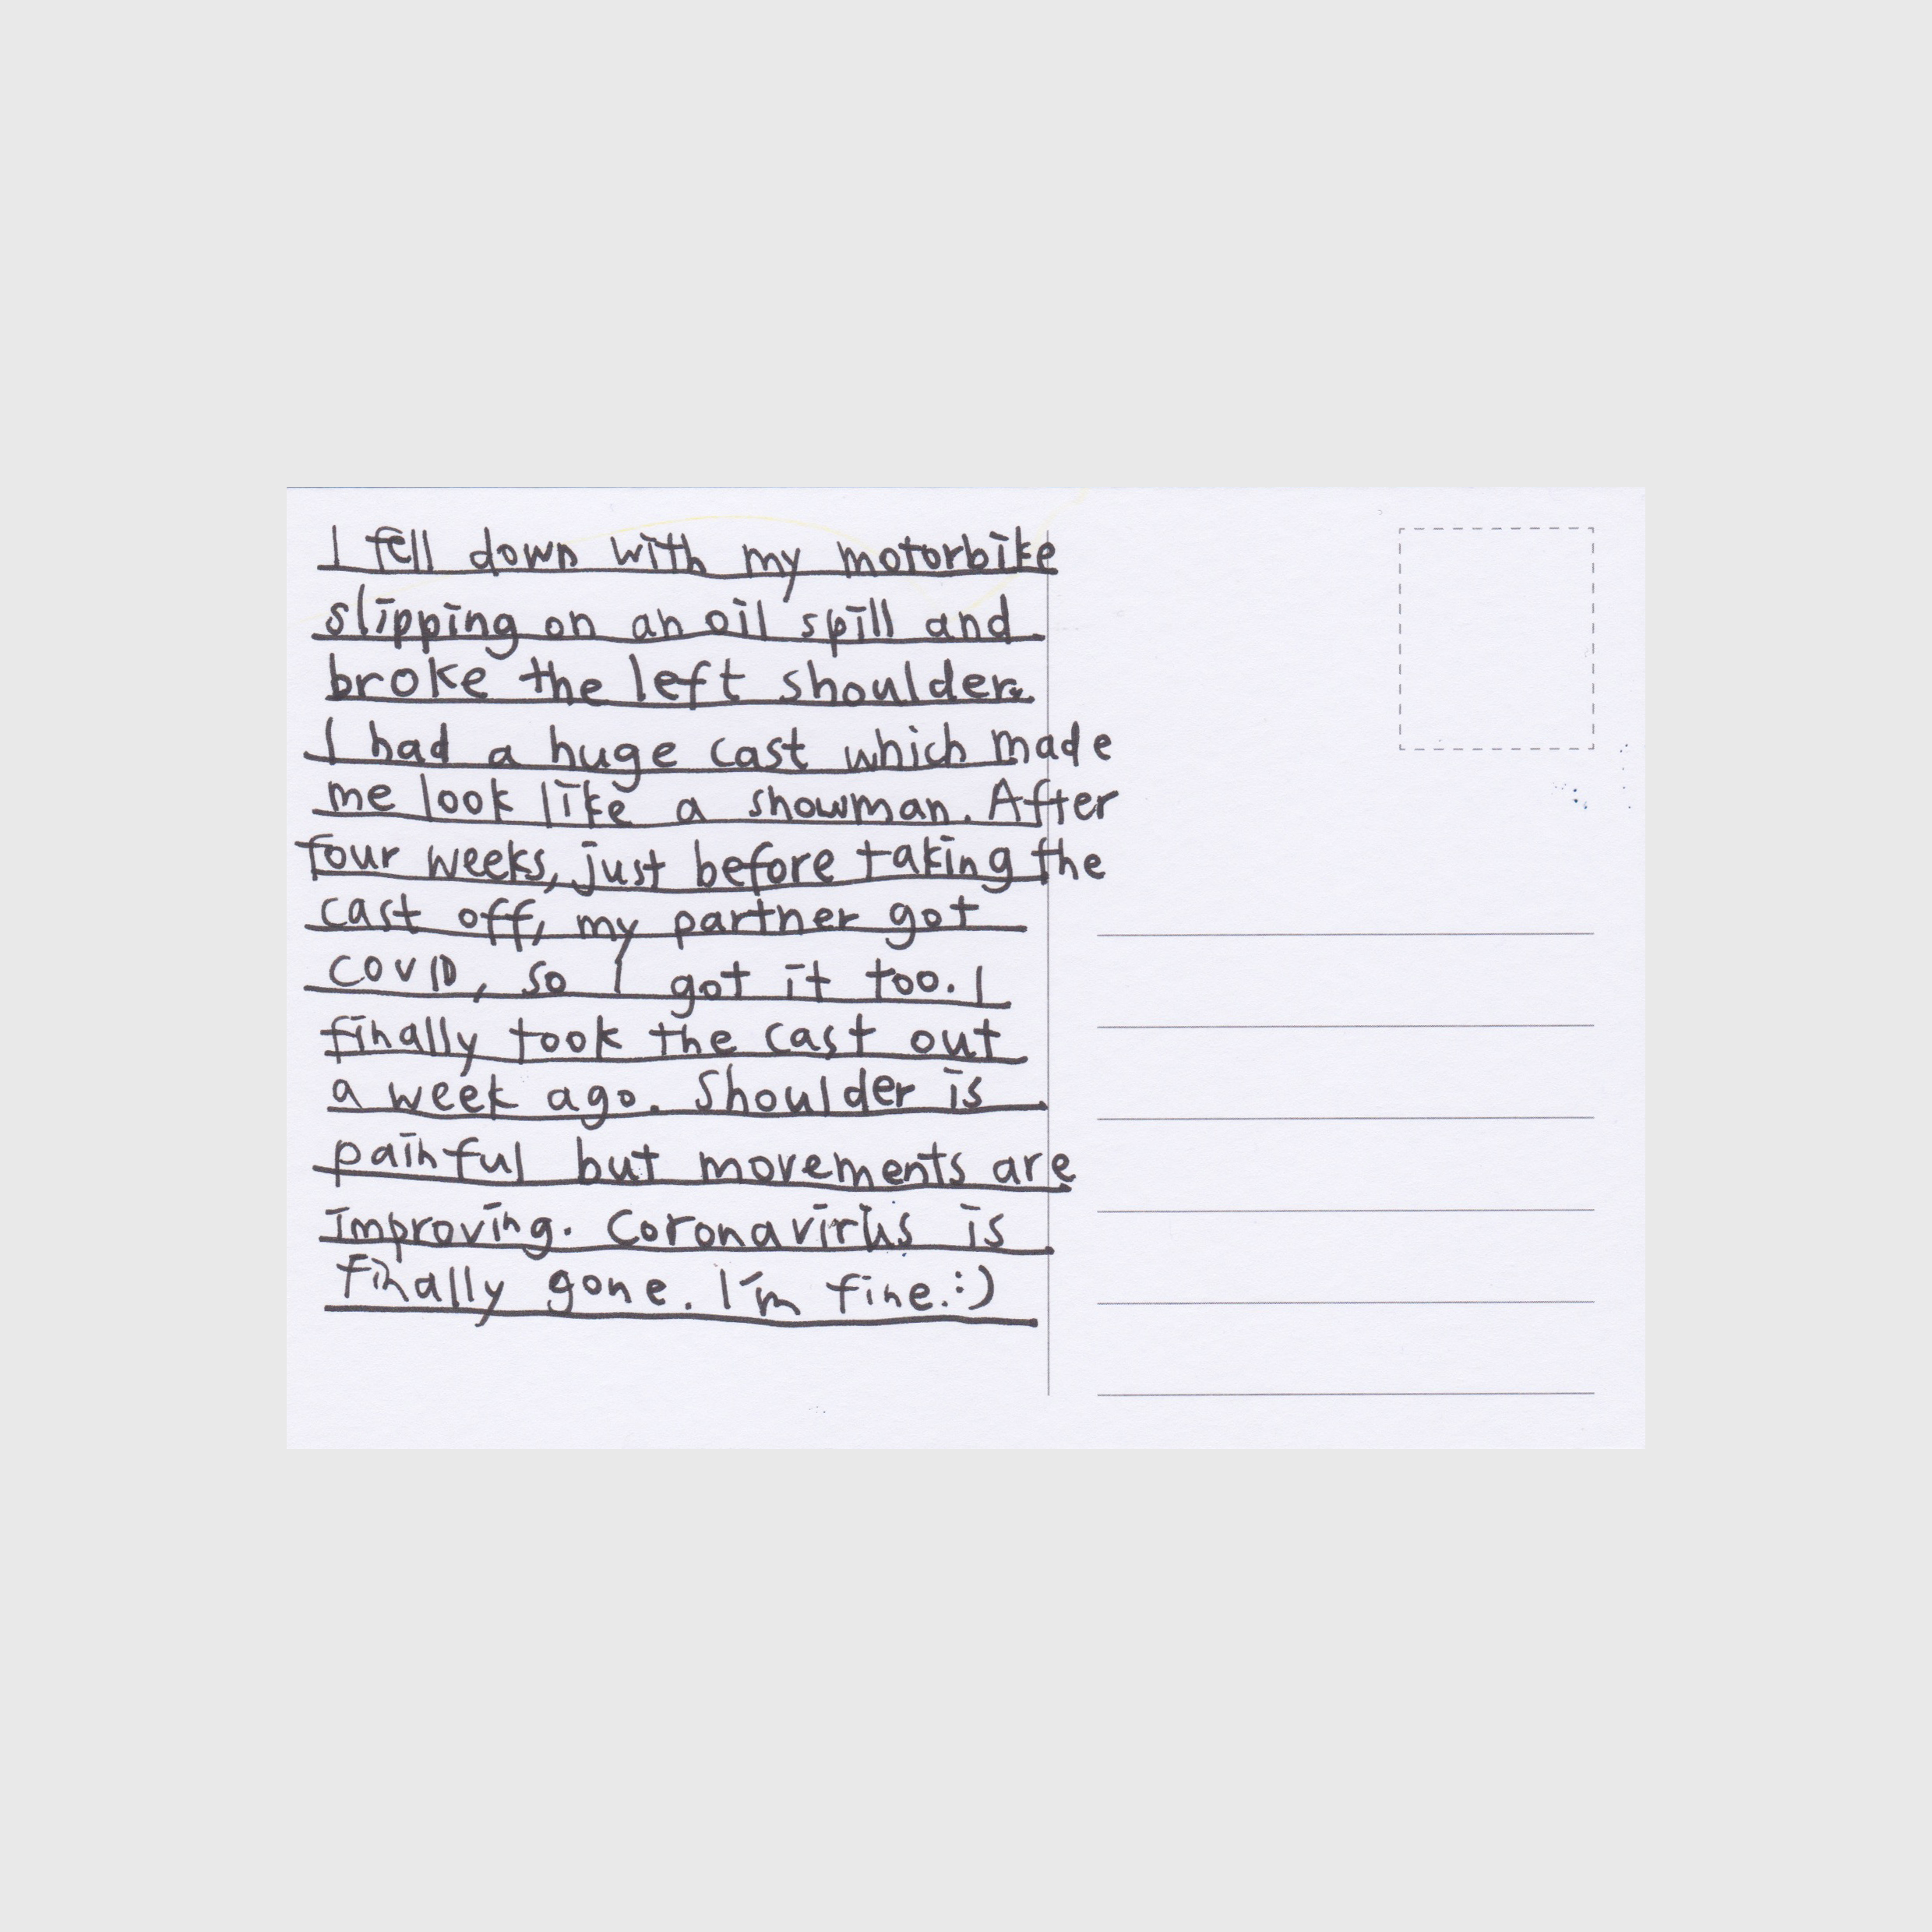 I fell down with my motorbike
slipping on an oil spill and
broke the left shoulder.
I had a huge cast which made
me look like a showman. After
four weeks, just before taking the
cast off, my partner got
COVID, so I got it too. I
finally took the cast out
a week ago. Shoulder is
painful but movements are
improving. Coronavirus is
finally gone. I'm fine.:)